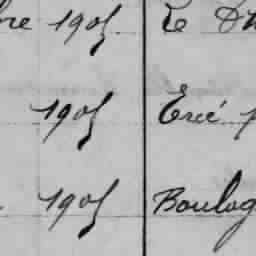 bre 1905 Le
1905 Eric
1905 Boulog